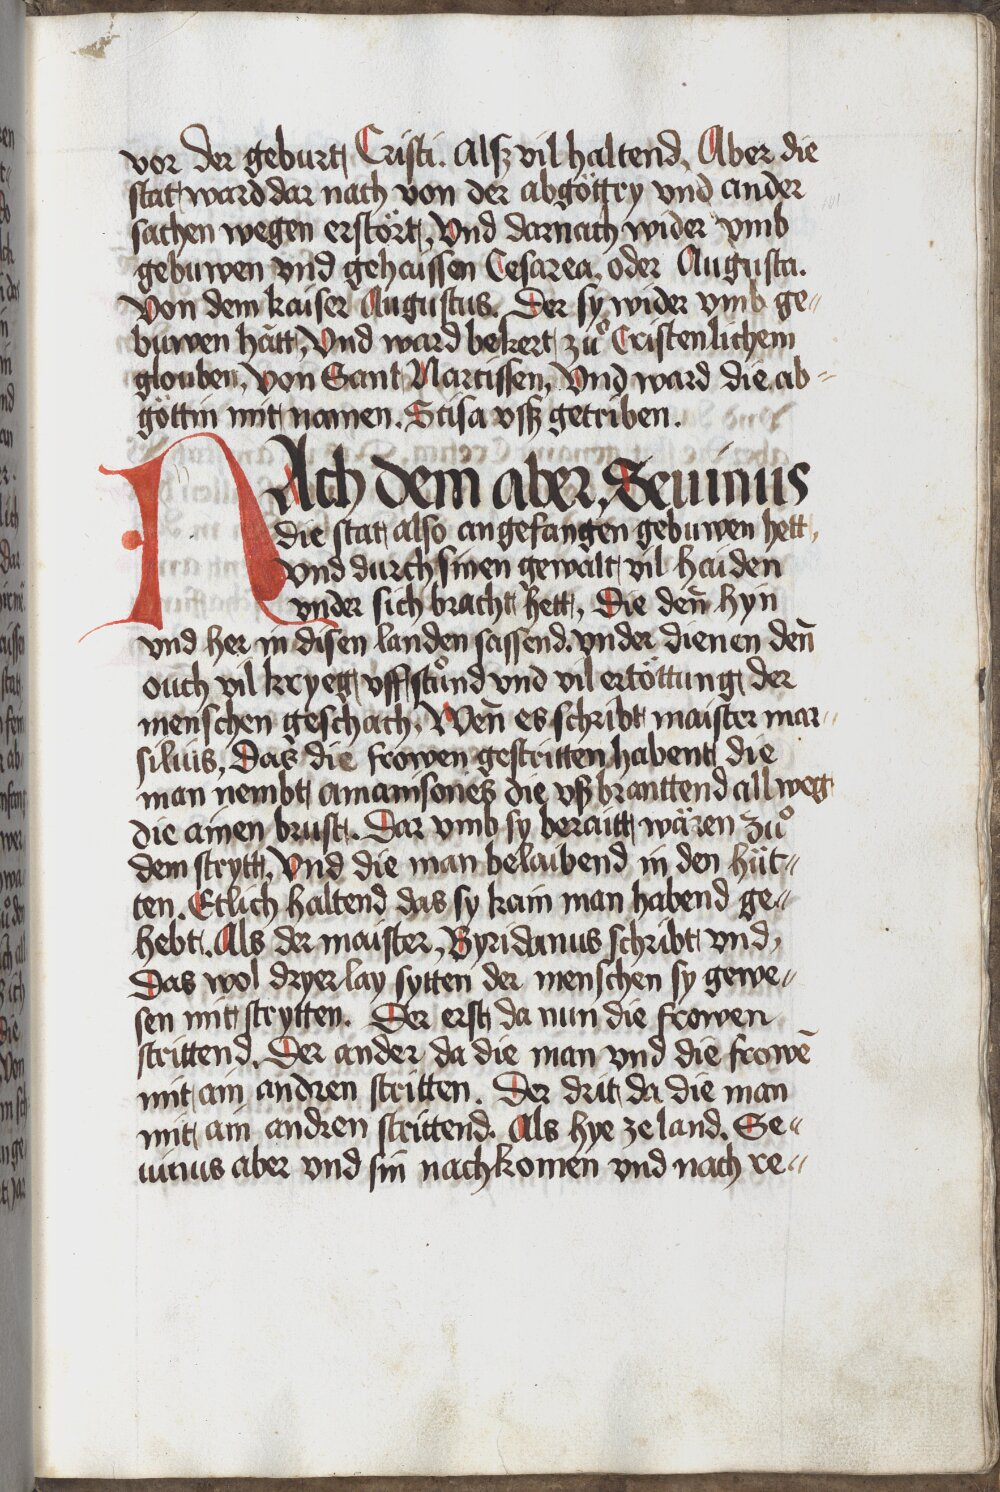 vor der geburt Cristi. Alsz vil haltend. Aber die
stat ward dar nach von der abgöttry vnd ander
sachen wegen erstört, Vnd darnach wider vmb
gebuwen vnd gehaissen Cesarea, oder Augusta.
Von dem kaiser Augustus. Der sy wider vmb ge„
buwen hātt, Vnd ward bekert zuͦ Cristenlichem
glouben, von Sant Narcissen, Vnd ward die ab„
göttin mit namen. Scisa vsz getriben.
NAch dem aber, Seuinus
die stat also angefangen gebuwen hett,
vnd durch sinen gewalt vil haiden
vnder sich bracht hett, Die den̄ hyn
vnd her in disen landen sassend. vnder dienen den̄
oůch vil kryeg vff stůnd vnd vil ertöttung der
menschen geschach. Wen̄ es schribt maister mar„
siluis, Das die frowen gestritten habent die
man nembt amamsones die vsz branttend all weg
die ainen brust. Dar vmb sy beraitt wären zuͦ
dem strytt, Vnd die man belaibend in den hüt„
ten. Etlich haltend das sy kain man habend ge„
hebt. Als der maister, Byridanus schribt vnd,
Das wol dryer lay sytten der menschen sy gewe„
sen mit strytten. Der erst da nun die frowen
strittend. Der ander da die man vnd die frowē
mit ain andren stritten. Der drit da die man
mit ain andren strittend. Als hye ze land. Se„
uinus aber vnd sin nachkomen vnd nach re„